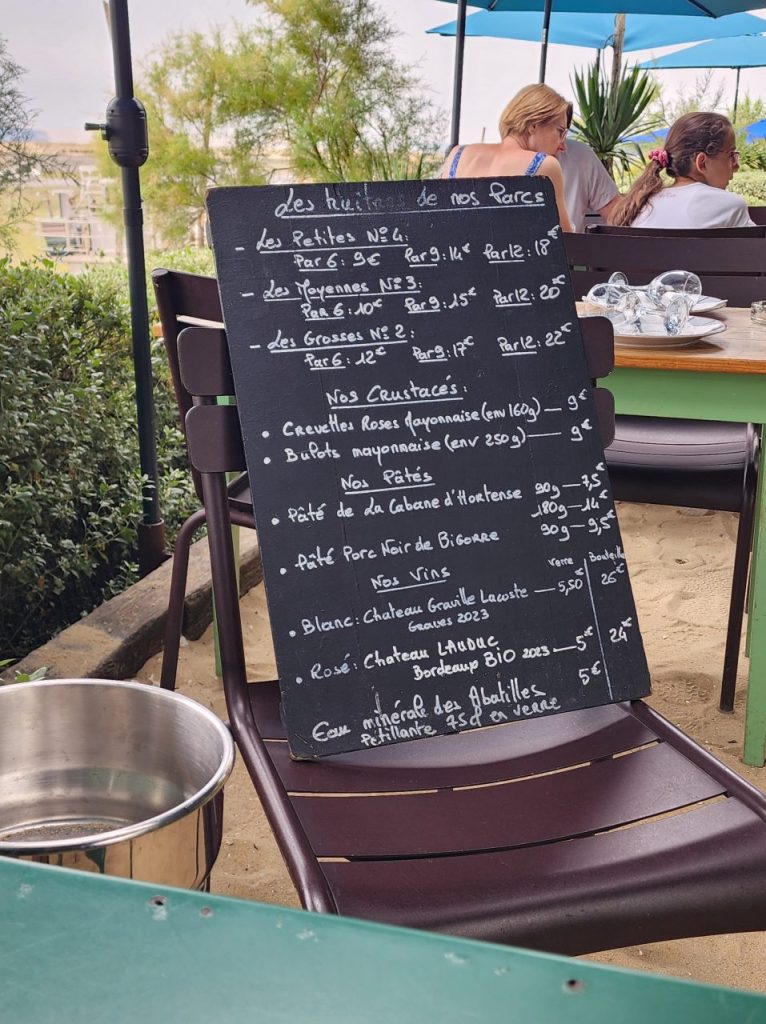 Les huîtres de nos Parcs
- Les Petites N°4:
Par 6: 9€ Par 9: 14€ Par 12: 18€
- Les Moyennes N°3:
Par 6: 10€ Par 9: 15€ Par 12: 20€
- Les Grosses N°2:
Par 6: 12€ Par 9: 17€ Par 12: 22€
Nos Crustacés:
• Crevettes Roses Mayonnaise (env 160g) — 9€
• Bulots mayonnaise (env 250g) — 9€
Nos Pâtés
• Pâté de La Cabane d'Hortense 90g — 7,5€
180g — 14€
• Pâté Porc Noir de Bigorre 90g — 9,5€
Nos Vins Verre Bouteille
• Blanc: Chateau Graville Lacoste — 5,50€ 26€
Graves 2023
• Rosé: Chateau LAUDUC — 5€ 24€
Bordeaux BIO 2023
Eau minérale des Abatilles 5€
Pétillante 75cl en verre